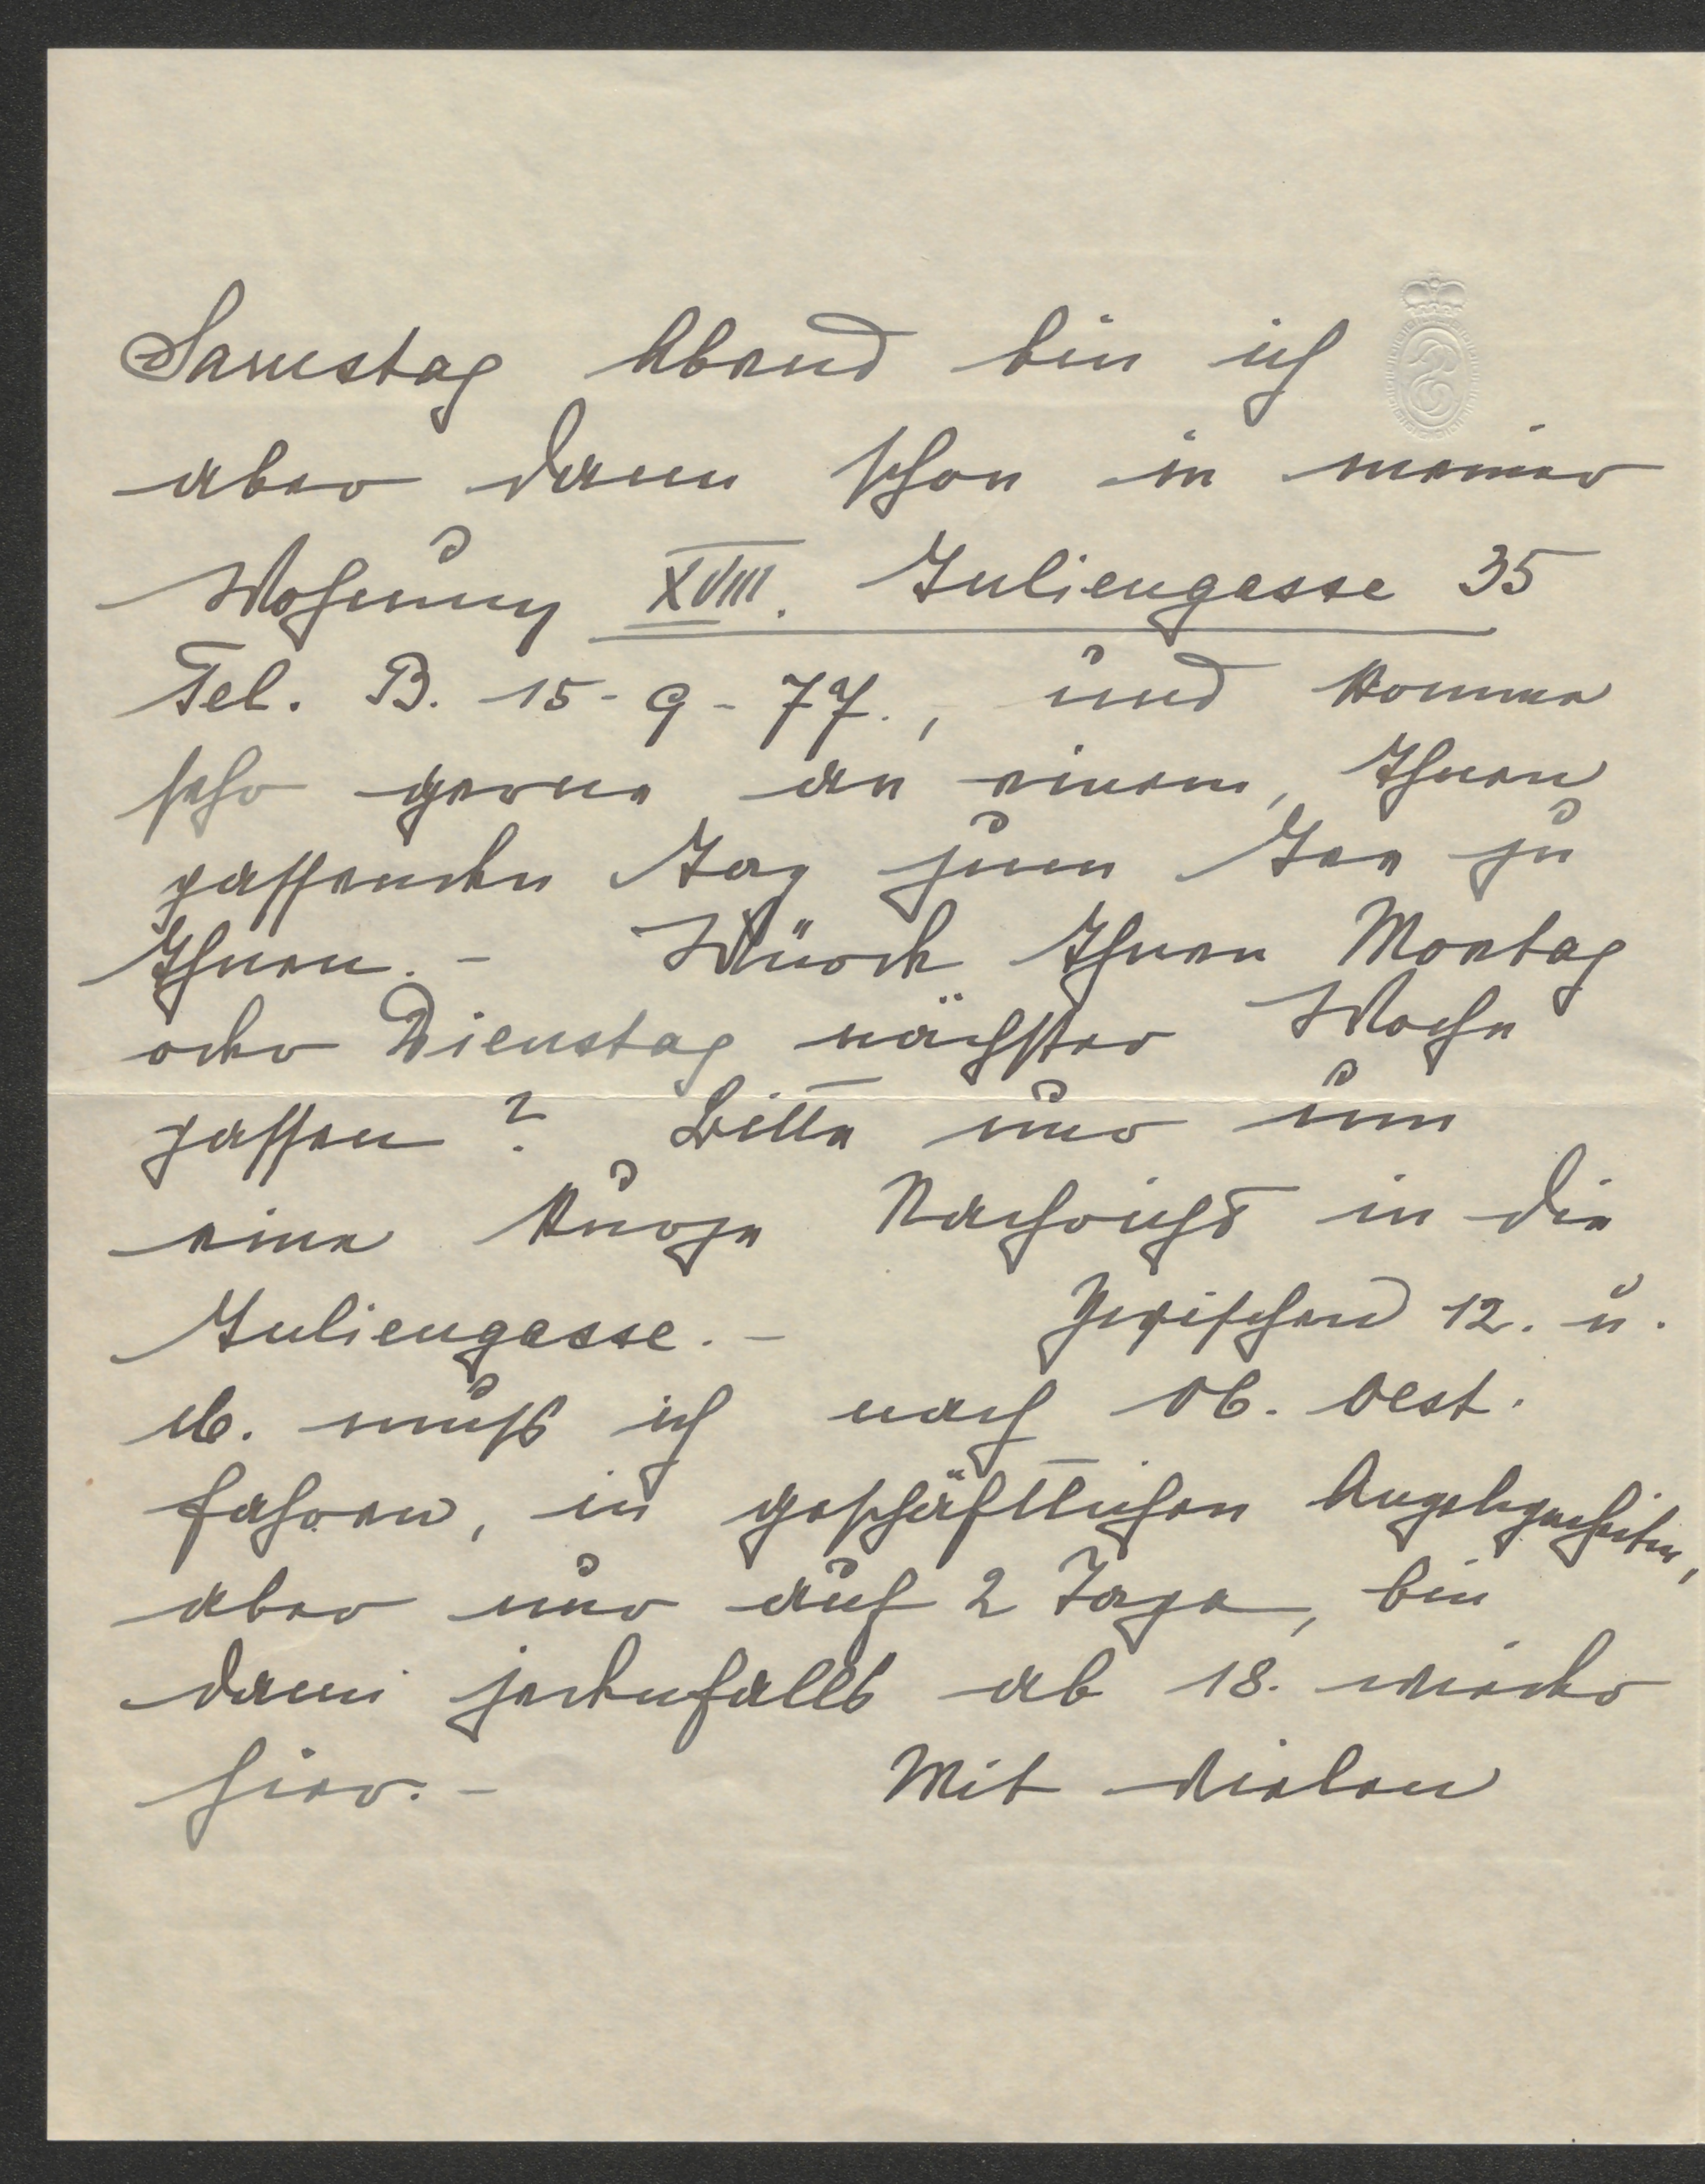 Samstag Abend bin ich
aber dann schon in meiner
Wohnung XVIII. Juliengasse 35
Tel. B. 15-9-77., und komme
sehr gerne an einem, Ihnen
passenden Tag zum Tee zu
Ihnen. – Würde Ihnen Montag
oder Dienstag nächster Woche
passen? Bitte nur um
eine kurze Nachricht in die
Juliengasse. – Zwischen 12. u.
16. muß ich nach Ob. Oest.
fahren, in geschäftlichen Angelegenheiten,
aber nur auf 2 Tage, bin
dann jedenfalls ab 18. wieder
hier. – Mit vielen